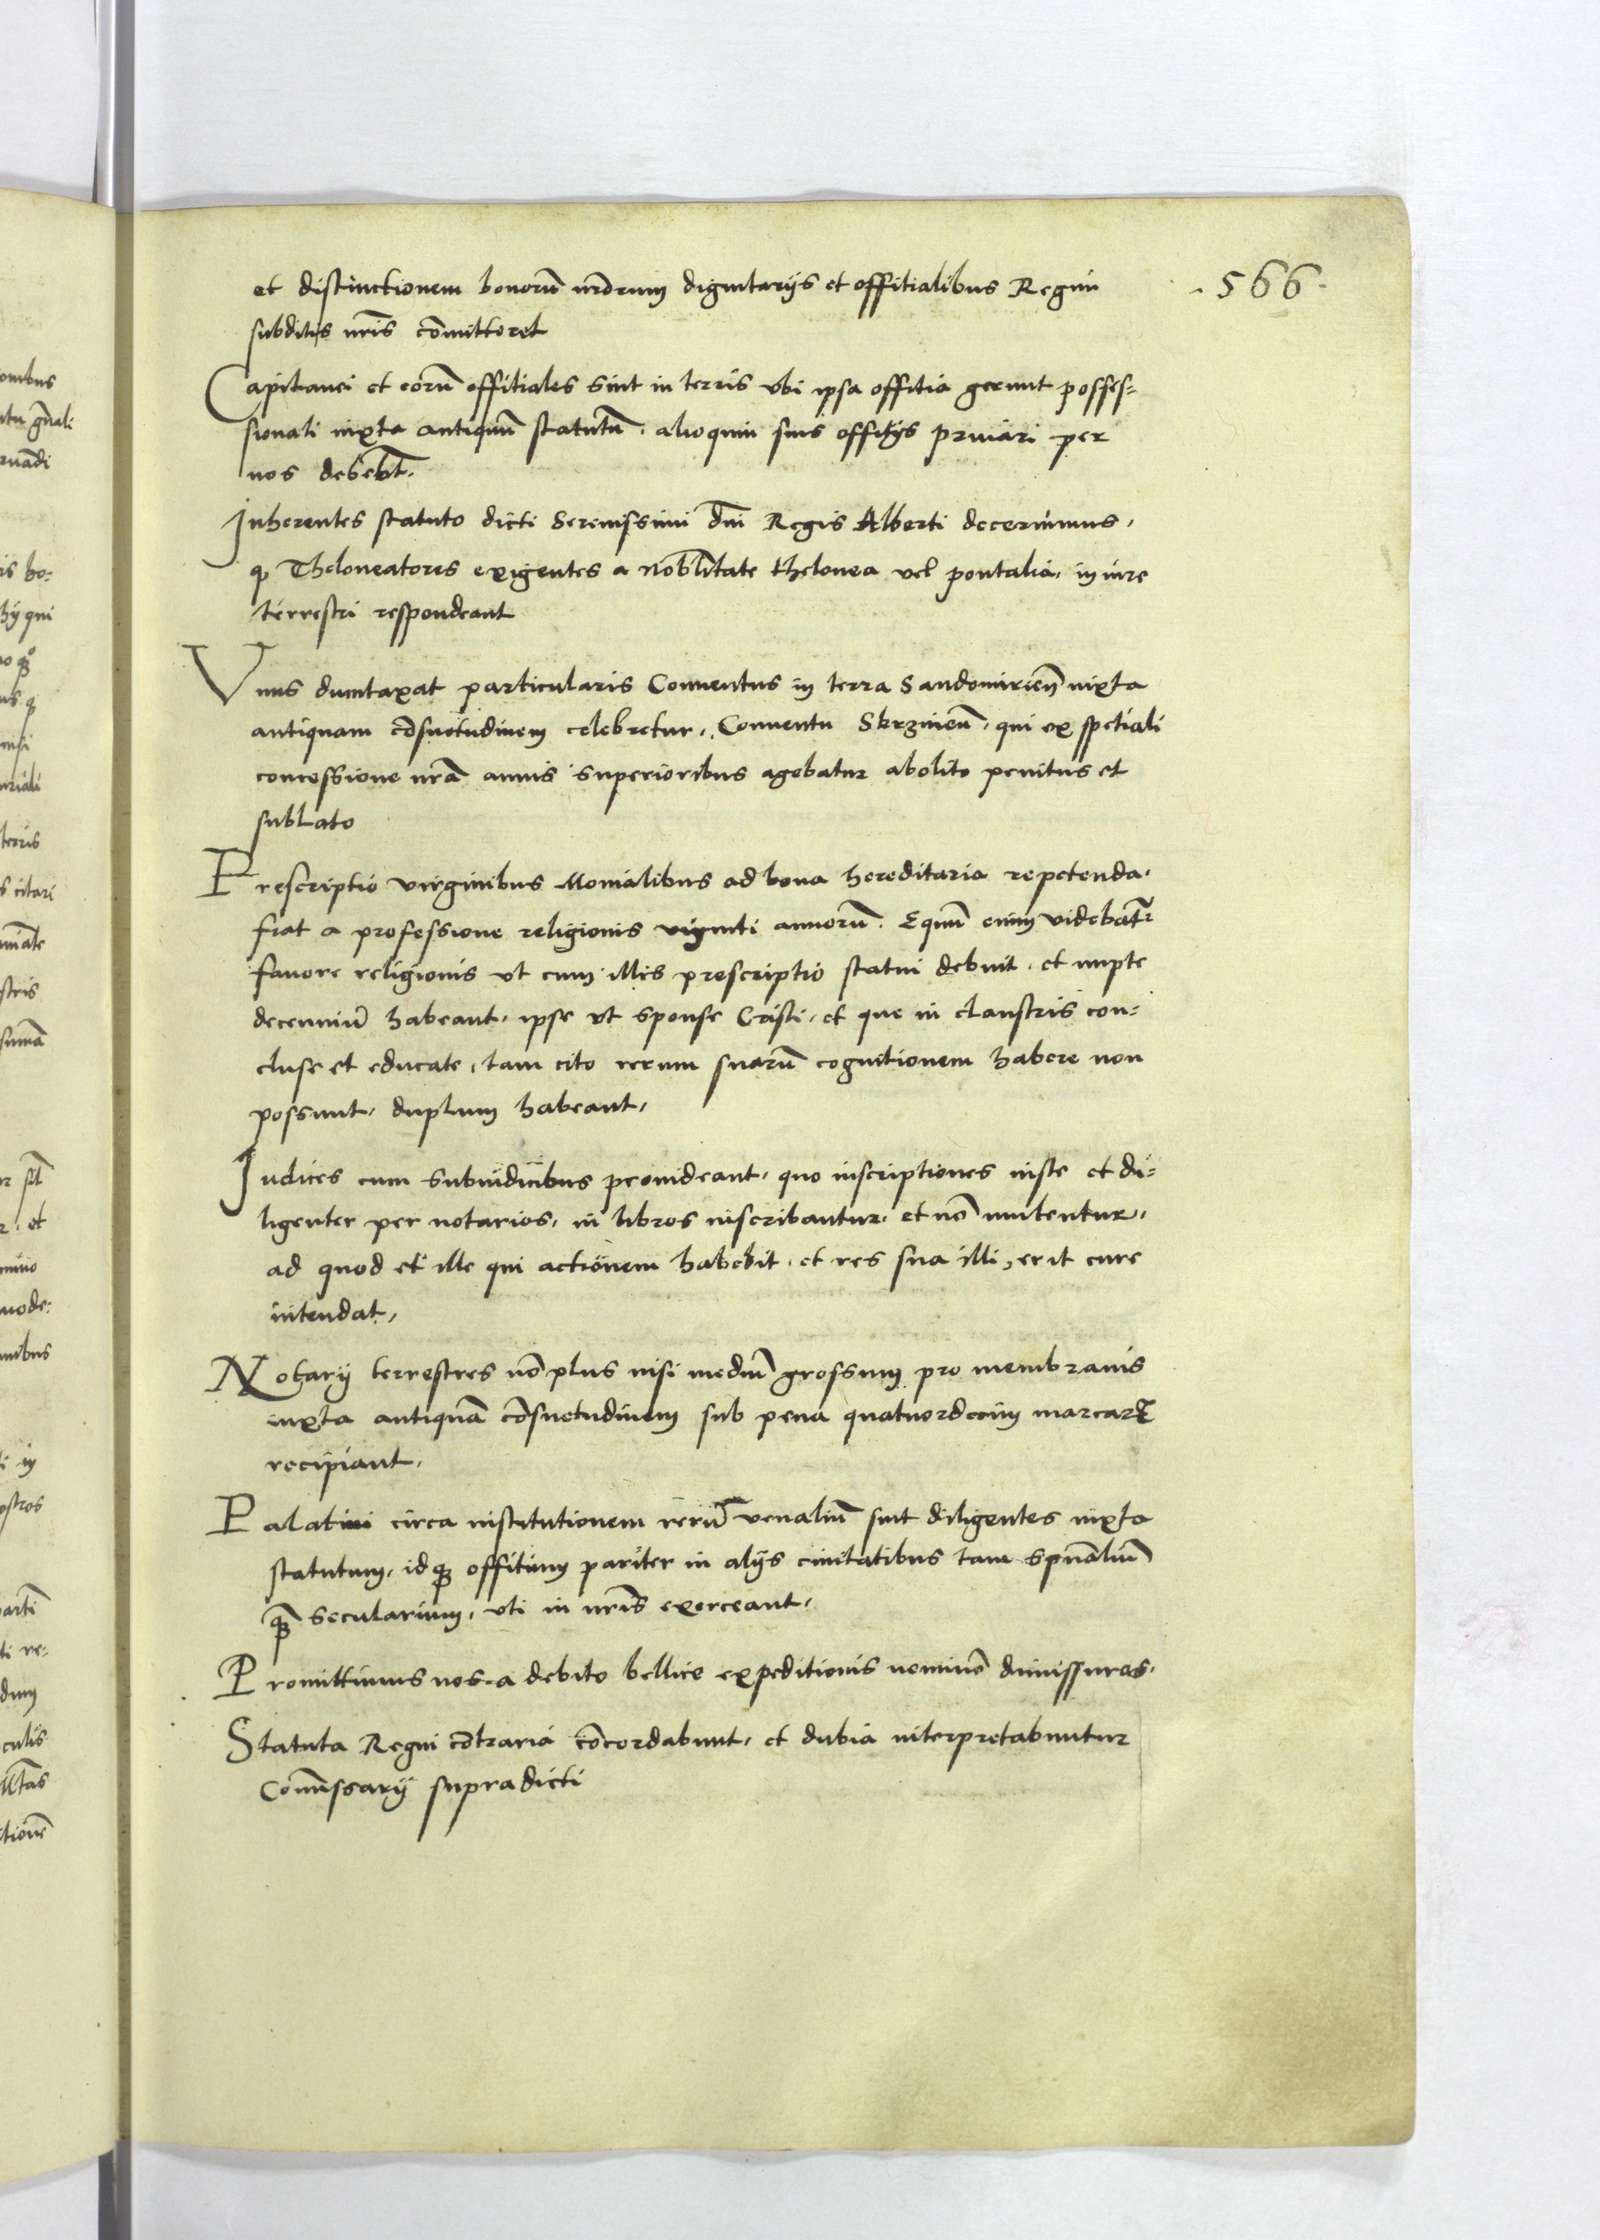 . 566 .
et distinctionem bonorū nr̄orum dignitarijs et offitialibus Regni
subditis nr̄is cōmitteret
Capitanei et eorū offitiales sint in terris vbi ipsa offitia gerunt posses-
sionati iuxta antiquū statutū . alioquin suis offitijs priuari per
nos debebūt.
Inherentes statuto dicti Serenissimi dn̄i Regis Alberti decernimus,
q̄ Theloneatores exigentes a nobilitate thelonea vel pontalia, in iure
terrestri respondeant
Vnus dumtaxat particularis Conuentus in terra Sandomirieñ iuxta
antiquam cōsuetudinem celebretur, Conuentu Skrzinieñ . qui ex spetiali
concessione nr̄a annis superioribus agebatur abolito penitus et
sublato
Prescriptio virginibus Monialibus ad bona hereditaria repetenda,
fiat a professione religionis viginti annorū . Equū enim videbatr̄
fauore religionis vt cum illis prescriptio statui debuit . et nupte
decenniū habeant, ipse vt sponse Cristi, et que in claustris con-
cluse et educate, tam cito rerum suarū cognitionem habere non
possunt, duplum habeant,
Iudices cum subiudicibus prouideant, quo inscriptiones iuste et di-
ligenter per notarios, in libros inscribantur, et nō mutentur,
ad quod et ille qui actionem habebit . et res sua illi, erit cure
intendat,
Notarij terrestres nō plus nisi mediū grossum pro membranis
iuxta antiquā cōsuetudinem sub pena quatuordecim marcarꝝ
recipiant,
Palatini circa institutionem rerū venaliū sint diligentes iuxta
statutum, idqꝫ offitium pariter in alijs ciuitatibus tam spūaliū
qꝫ̄ secularium, vti in nr̄is exerceant,
Promittimus nos a debito bellice expeditionis neminē dimissuros,
Statuta Regni cōtraria cōcordabunt, et dubia interpretabuntur
Comissarij supradicti